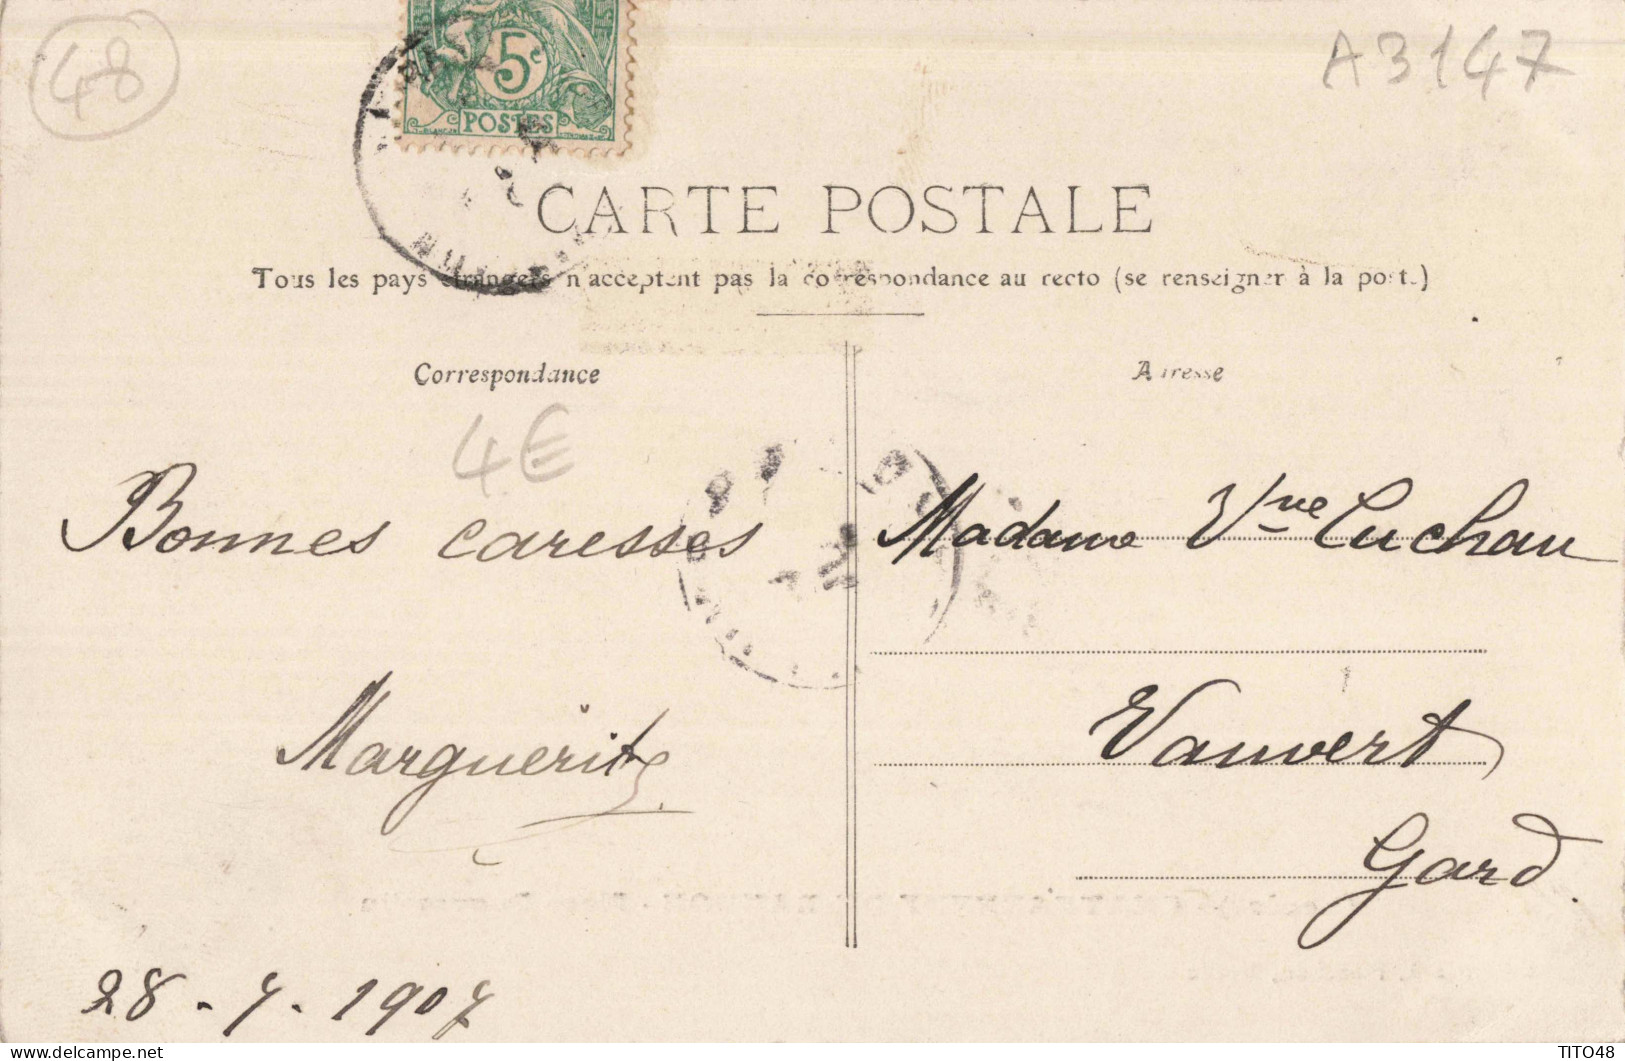 48
A3147
5c
POSTES
CARTE POSTALE
Tous les pays étrangers n'acceptent pas la correspondance au recto (se renseigner à la poste)
Correspondance
Adresse
4€
Bonnes caresses
Marguerite
28-7-1907
Madame Vve Cuchau
Vauvert
Gard.
TITO48